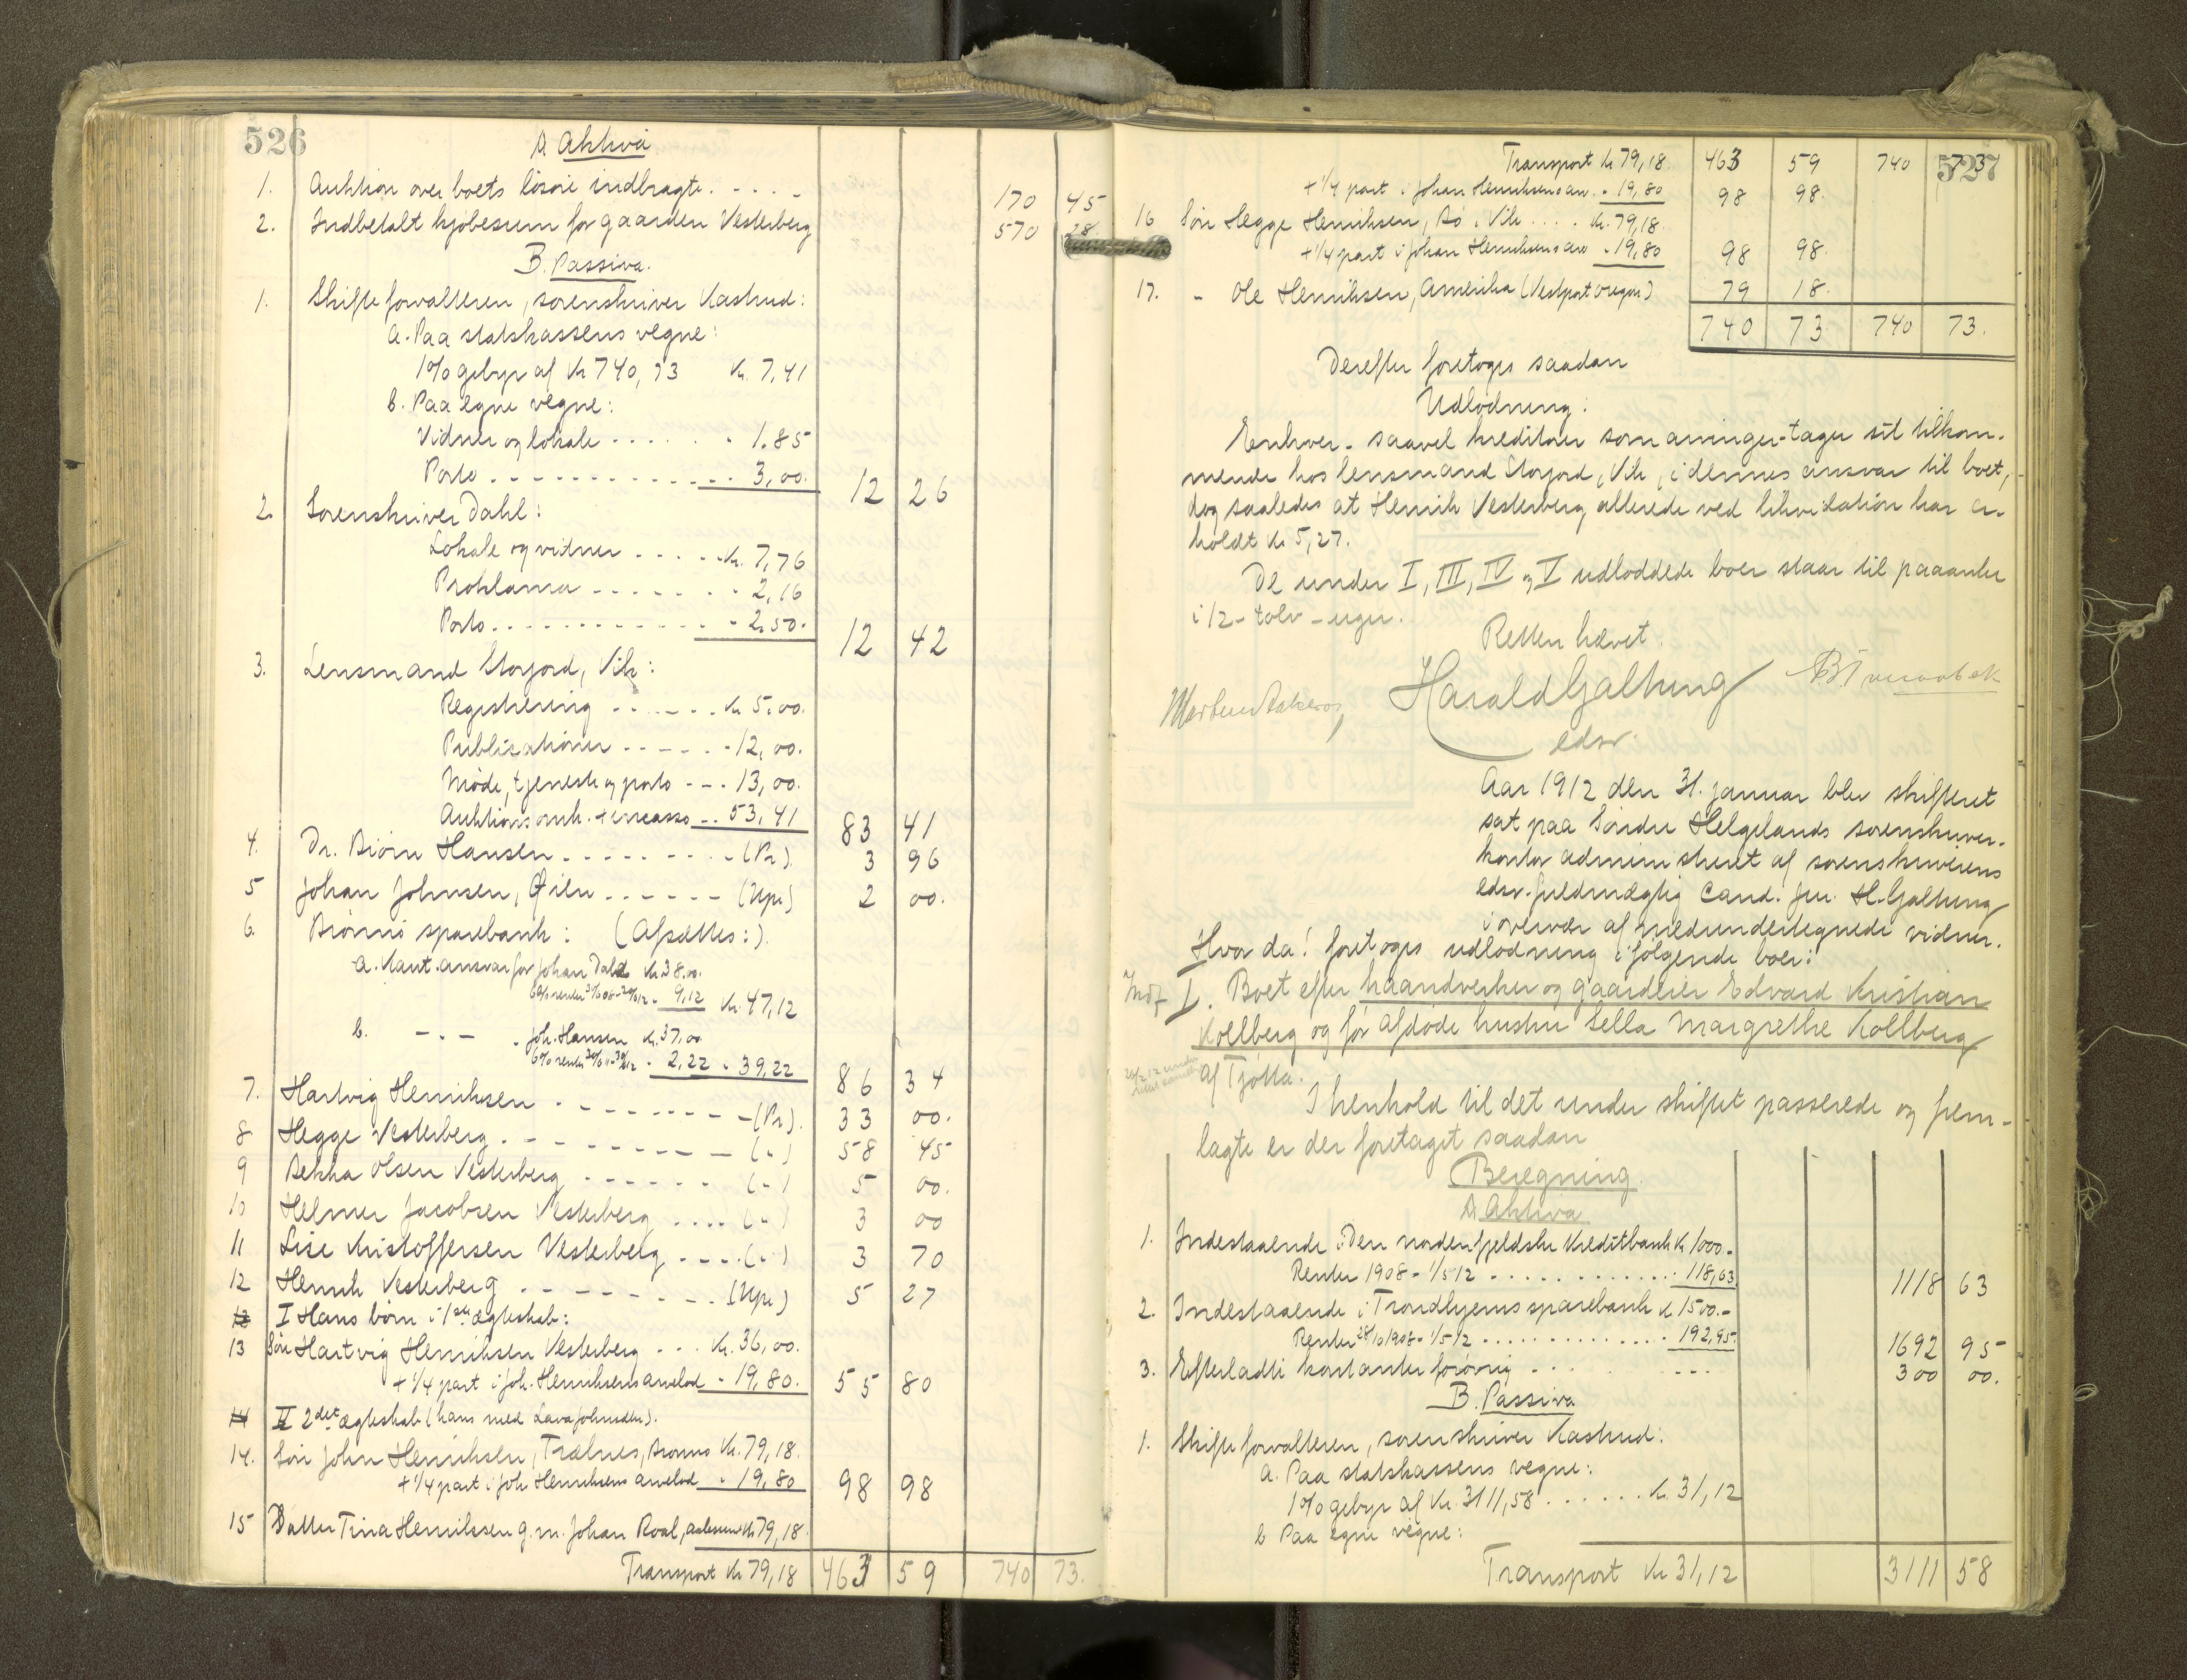 526
A. Aktiva
1. Auktion over boets lösöre indbragte . . . . 170 45
2. Indbetalt kjøbesum for gaarden Vesterberg 570 28
B. Passiva.
1. Skifteforvalteren, sorenskriver Kastrud:
a. Paa statskassens vegne:
1% gebyr af Kr 740,73 Kr. 7,41
b. Paa egne vegne:
Vidner og lokale . . . . . . " 1.85
Porto . . . . . . . . . . . . 3,00. 12 26
2. Sorenskriver Dahl:
Lokale og vidner . . . . . Kr. 7,76
Proklama . . . . . . . " 2,16
Porto . . . . . . . . . . . . " 2,50. 12 42
3. Lensmand Storjord, Vik:
Registrering . . . . . . Kr 5,00.
Publikationer . . . . . . " 12,00.
Møde, tjeneste og porto - - - 13,00.
Auktionsomk. + incasso . . 53,41 83 41
4. Dr. Biörn Hansen . . . . . . . . . (Pr). 3 96
5 Johan Johnsen, Øien . . . . . . (Upr) 2 00.
6. Brönnö sparebank: (Afsættes:).
a. Kaut. ansvar for Johan Dale Kr 38.00.
6% renter " 9,12 Kr. 47,12
b. - " - " Joh. Hansen Kr. 37,00
6% renter " 2,22 " 39,22 86 34
7. Hartvig Henriksen . . . . . . . . (Pr). 33 00.
8 Hegge Vesterberg . . . . . . . . (") 58 45
9 Rekka Olsen Vesterberg . . . . . . (") 5 00.
10 Helmer Jacobsen Vesterberg . . . . (") 3 00
11 Lise Kristoffersen Vesterberg . . . . (") 3 70
12 Henrik Vesterberg . . . . . . . . . (Upr) 5 27
I Hans börn i 1ste ægteskab:
13 Sön Hartvig Henriksen Vesterberg . . . Kr. 36,00.
+ 1/4 part i Joh. Henriksens arvelod " 19,80. 55 80
II 2det ægteskab (hans med Lava Johnsdtr).
14. Sön John Henriksen, Trælnes, Brönnö Kr. 79,18.
+ 1/4 part i Joh Henriksens arvelod " 19,80 98 98
15 Datter Tina Henriksen g. m. Johan Roal, Aalesund Kr 79,18.
Transport Kr 79,18 463 59 740 73.
527
Transport Kr 79,18. 463 59 740 73
+ 1/4 part i Johan Henriksens arv. " 19,80 98 98.
16 Sön Hegge Henriksen, Bö i Vik . . . . Kr. 79,18.
+ 1/4 part i Johan Henriksens arv " 19,80 98 98.
17. " Ole Henriksen, Amerika (Vestport Oregon) 79 18.
740 73 740 73.
Derefter foretoges saadan
Udlodning:
Enhver - saavel kreditorer som arvinger - tager sit tilkom-
mende hos lensmand Storjord, Vik, i dennes ansvar til boet,
dog saaledes at Henrik Vesterberg allerede ved likvidation har er-
holdt Kr 5,27.
De under I, III, IV og V udloddede boer staar til paaanke
i 12 - tolv - uger.
Retten hævet.
Harald Galtung
edsv.
Aar 1912 den 31. januar blev skifteret
sat paa Söndre Helgelands sorenskriver-
kontor administreret af sorenskriverens
edsv. fuldmægtig cand. jur. H. Galtung
i overvær af medundertegnede vidner.
Hvor da! foretoges udlodning i fölgende boer:
Indf I. Boet efter haandverker og gaardeier Edvard Kristian
Kollberg og før afdøde hustru Sella Margrethe Kollberg
af Tjötta.
I henhold til det under skiftet passerede og frem-
lagte er der foretaget saadan
Beregning.
A. Aktiva
1. Indestaaende i Den nordenfjeldske Kreditbank Kr 1000.-
Renter 1908 - 1/5 12 . . . . . . . . . . . . . 118,63 1118 63
2. Indestaaende i Trondhjems sparebank Kr 1500.-
Renter 28/10 1908 - 1/5 12 . . . . . . . . . . . . . " 192,95. 1692 95
3. Efterladte kontanter forövrig . . . . . . 300 00.
B. Passiva
1. Skifteforvalteren, sorenskriver Kastrud:
a. Paa statskassens vegne:
1% gebyr af Kr. 3111,58 . . . . . . Kr. 31,12
b Paa egne vegne:
Transport Kr 31,12 3111 58